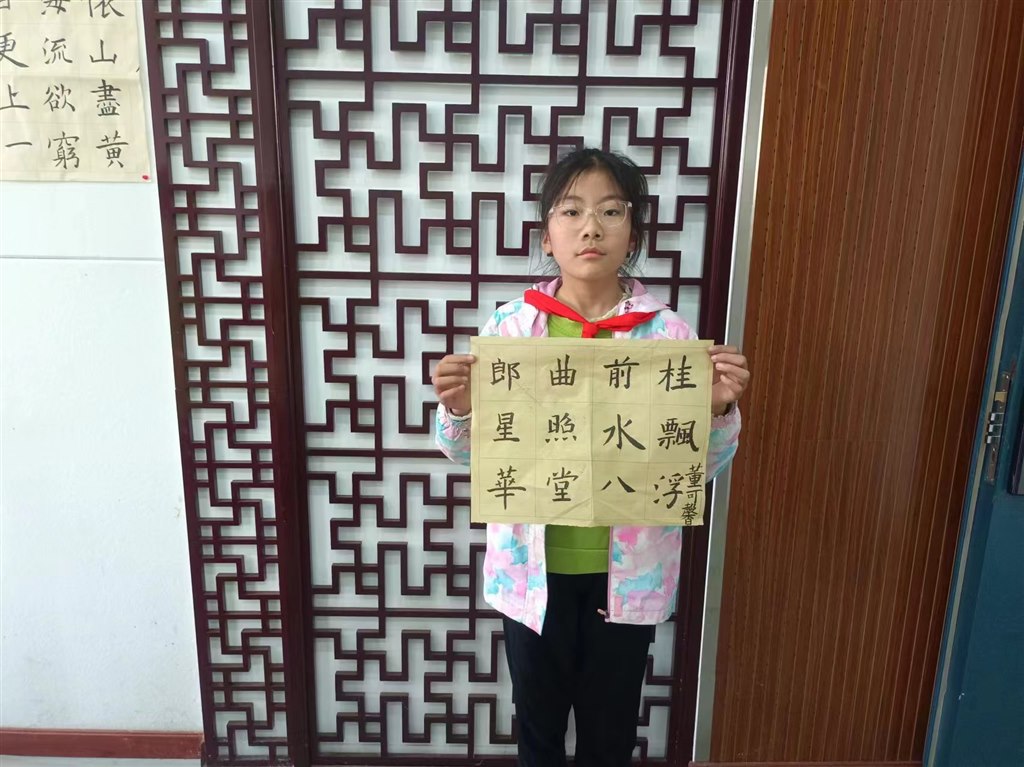 依山盡黃
海流欲窮
更上一
桂飄浮
前水八
曲照堂
郎星華
董可馨